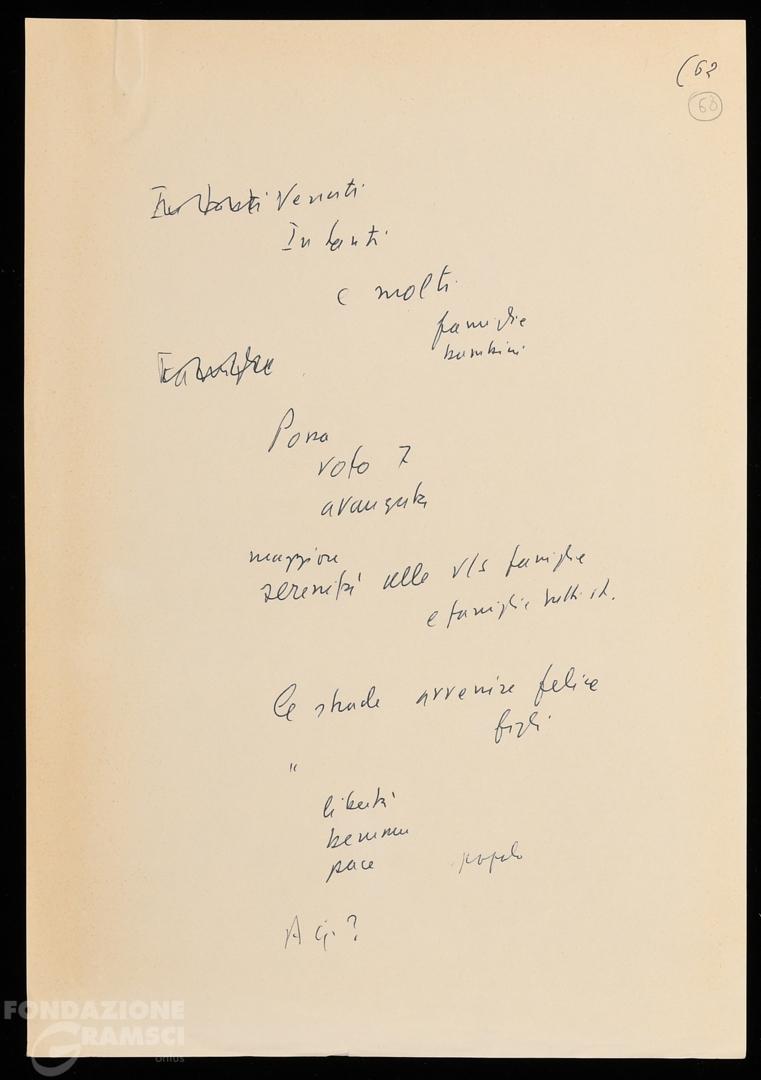 (62
60
Venuti
In tanti
e molti
famiglie
bambini
Possa
voto 7
avanguta
maggiore
serenità alle v/s famiglie
e famiglie tutti it.
le strade avvenire felice
figli
"
libertà
benessere
pace popolo
A
FONDAZIONE
GRAMSCI
onlus